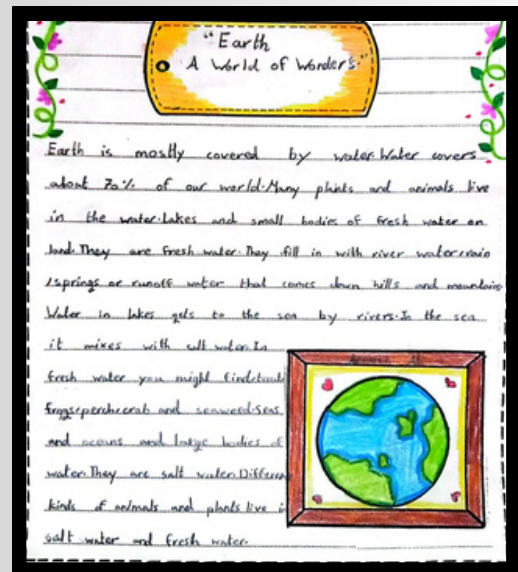 "Earth
A World of Wonders."
Earth is mostly covered by water. Water covers
about 70% of our world. Many plants and animals live
in the water. Lakes and small bodies of fresh water on
land. They are fresh water. They fill in with river water, rain
, springs or runoff water that comes down hills and mountains
Water in lakes gets to the sea by rivers. In the sea
it mixes with salt water. In
fresh water you might find
and seaweed. Seas
and oceans and large bodies of
water. They are salt water. Different
kinds of animals and plants live in
salt water and fresh water.